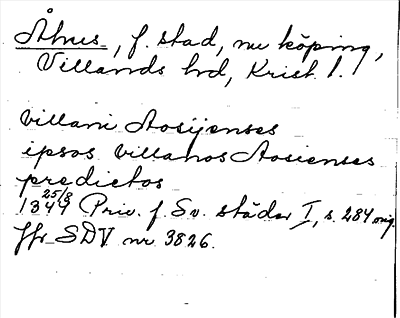 Åhus, f. stad, nu köping,
Villands hd, Krist. l.
villani Aosyenses
ipsos villanos Aosienses
predictos
25/8
1344 Priv. f. Sv. städer I, s. 284 orig.
Jfr SDV nr 3826.